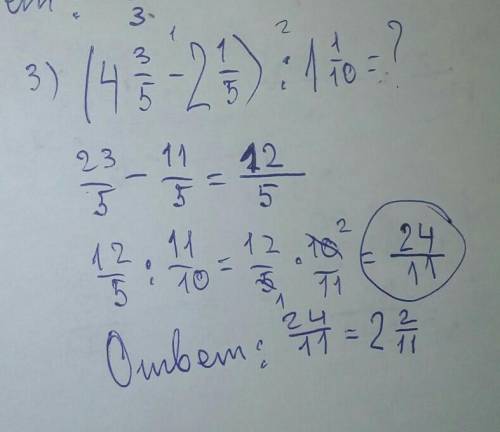 3.
3) (4 3/5 - 2 1/5) : 1 1/10 = ?
23/5 - 11/5 = 12/5
12/5 : 11/10 = 12/5 · 10/11 = 24/11
Ответ: 24/11 = 2 2/11